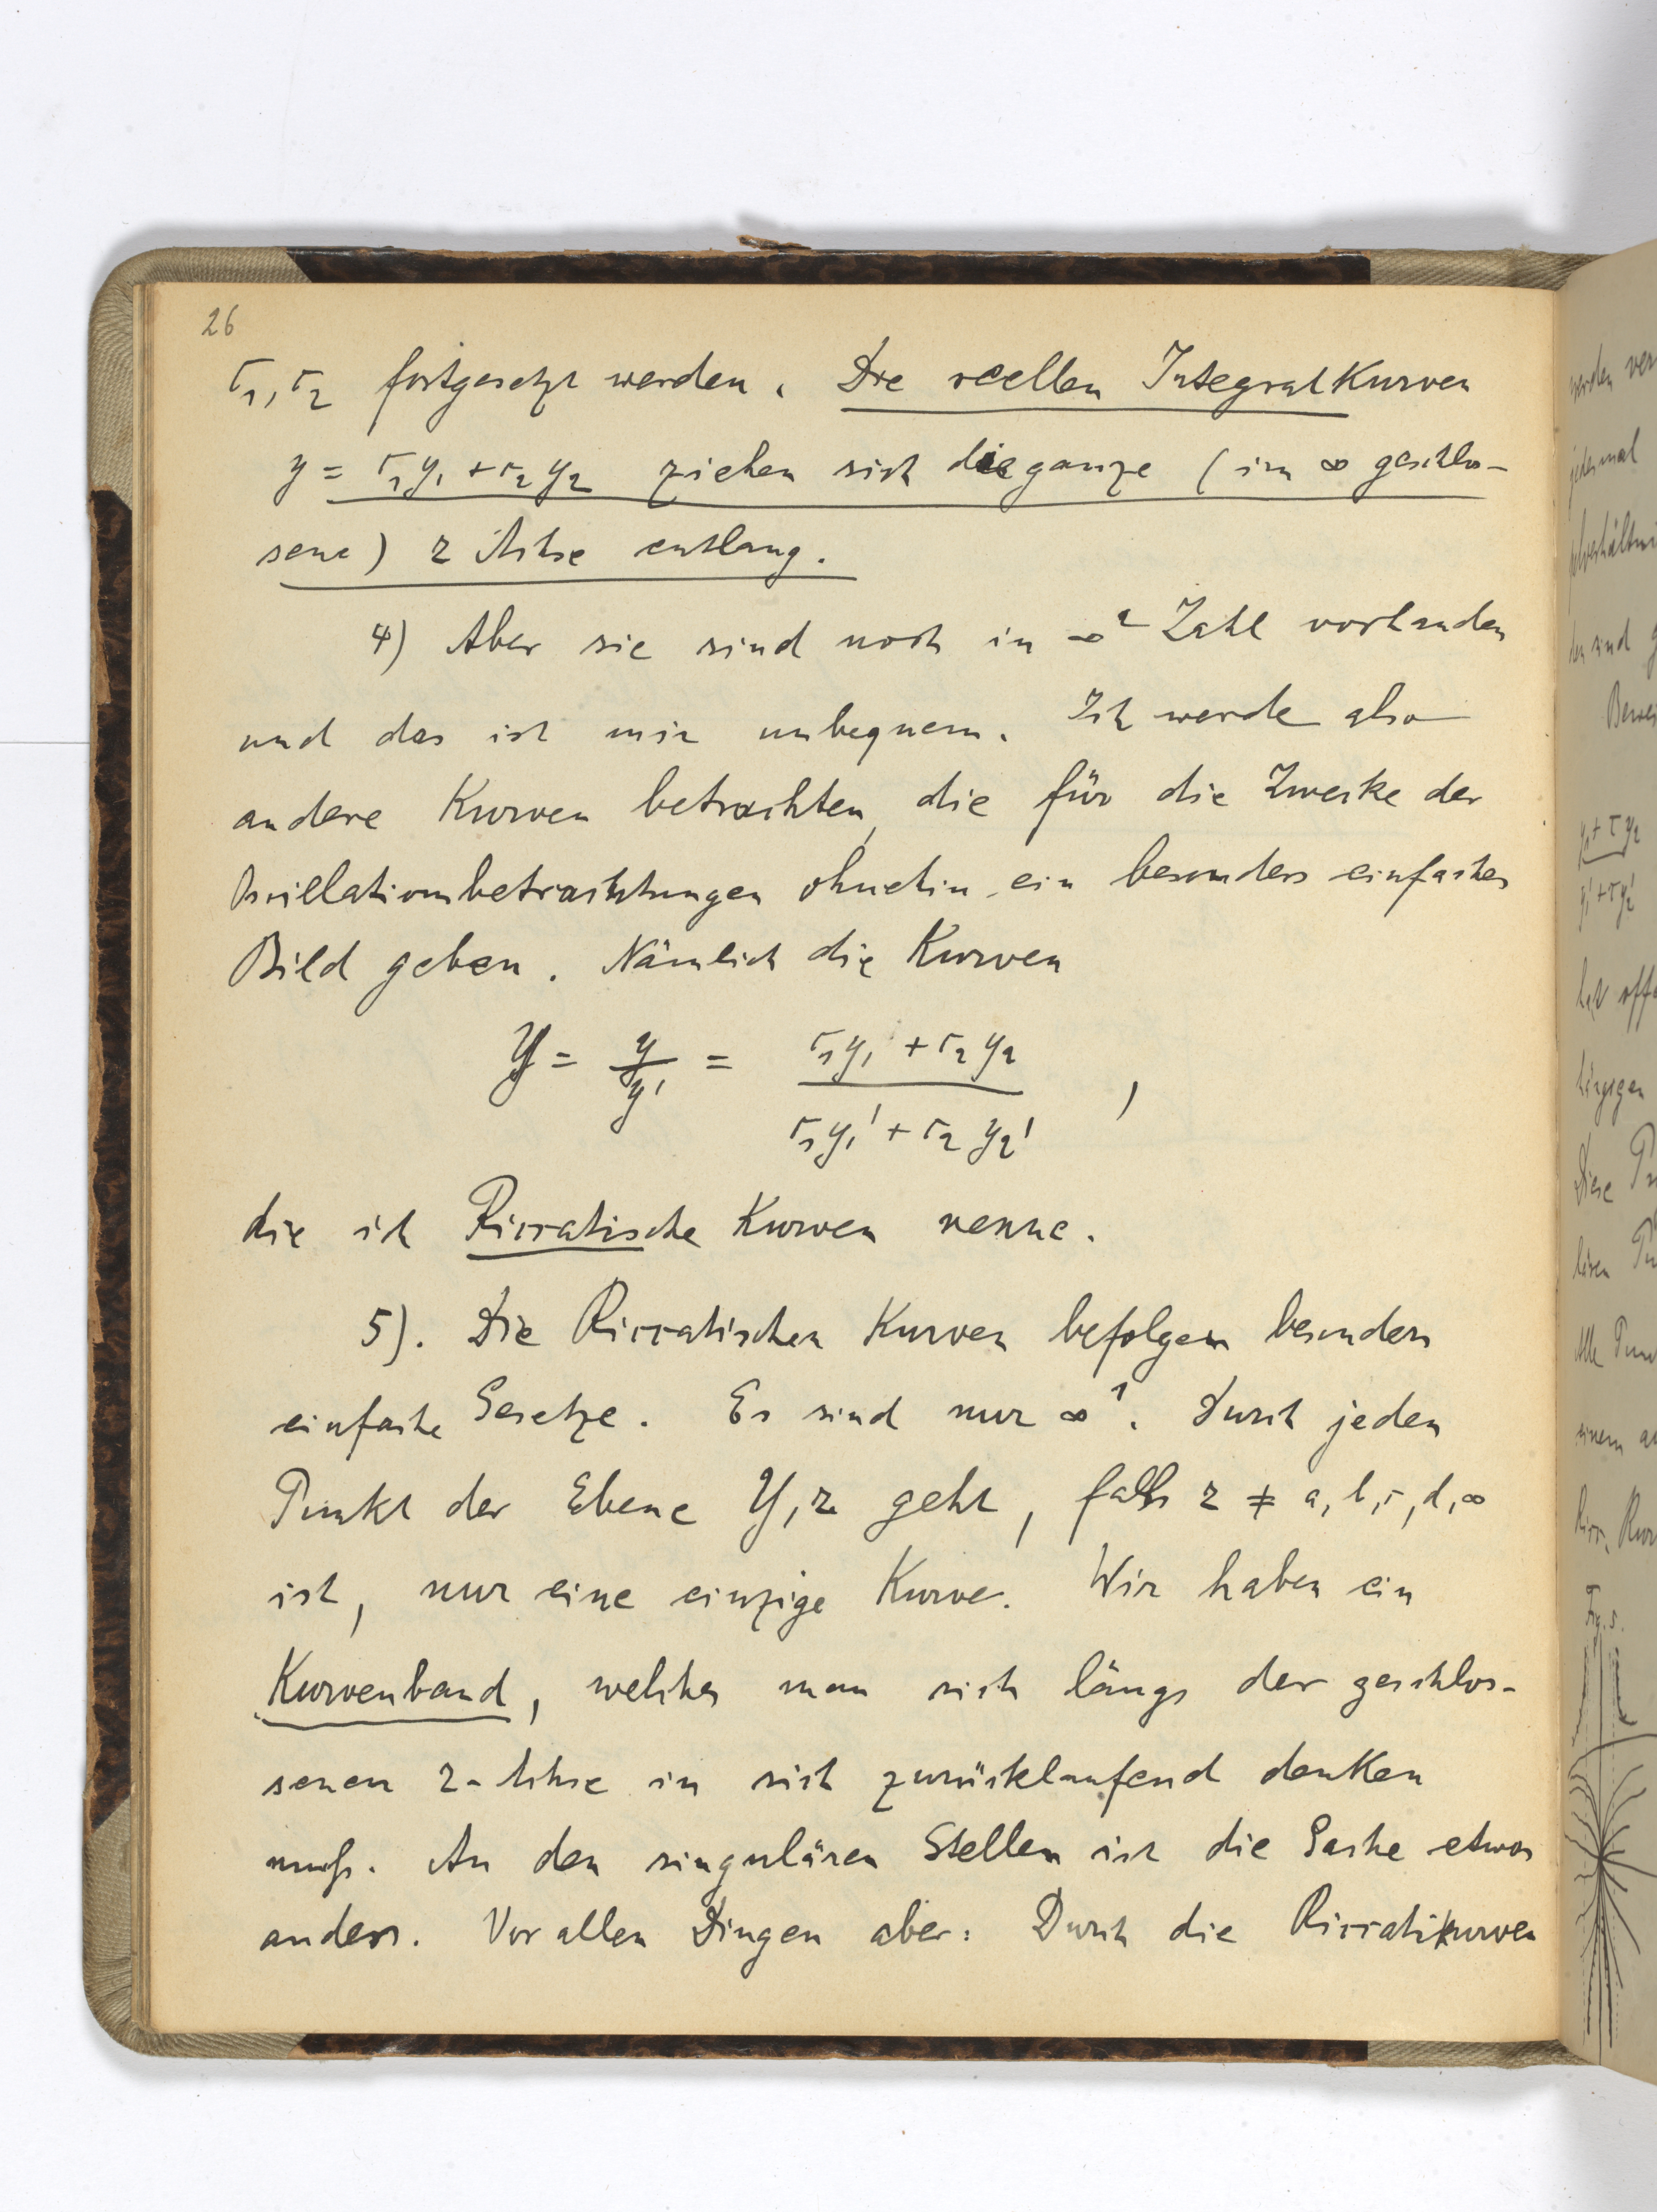 26
c₁, c₂ fortgesetzt werden. Die reellen Integralkurven
y = c₁y₁ + c₂y₂ ziehen sich die ganze (im ∞ geschlos-
sene) z Achse entlang.
4) Aber sie sind noch in ∞² Zahl vorhanden
und das ist mir unbequem. Ich werde also
andere Kurven betrachten, die für die Zwecke der
Oscillationsbetrachtungen ohnehin ein besonders einfaches
Bild geben. Nämlich die Kurven
Y = y/y' = (c₁y₁ + c₂y₂)/(c₁y₁' + c₂y₂') ,
die ich Riccatische Kurven nenne.
5). Die Riccatischen Kurven befolgen besonders
einfache Gesetze. Es sind nur ∞¹. Durch jeden
Punkt der Ebene Y, z geht, falls z ≠ a, b, c, d, ∞
ist, nur eine einzige Kurve. Wir haben ein
Kurvenband, welches man sich längs der geschlos-
senen z-Achse in sich zurücklaufend denken
muß. An den singulären Stellen ist die Sache etwas
anders. Vor allen Dingen aber: Durch die Riccatikurven
werden
jedesmal
sind
y₁ + τy₂
y₁' + τy₂'
hat
Diese
Alle
einem
Ricc.
Fig. 5.